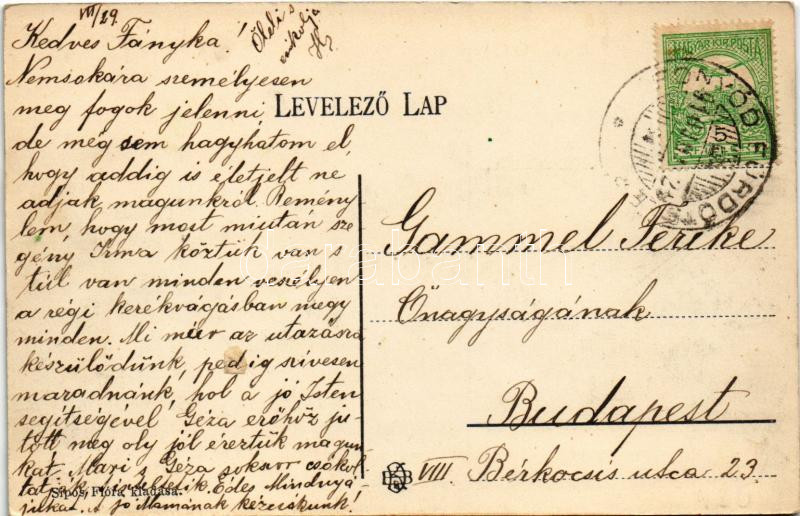 VII/29.
Kedves Fányka!
Nemsokára személyesen
meg fogok jelenni,
de még sem hagyhatom el,
hogy addig is életjelt ne
adjak magunkról. Remény-
lem, hogy most miután sze-
gény Irma köztük van s
túl van minden veszélyen
a régi kerékvágásban megy
minden. Mi már az utazásra
készülődünk, pedig szívesen
maradnánk, hol a jó Isten
segítségével Géza erőhöz ju-
tott meg oly jól éreztük magun-
kat. Mari s Géza sokszor csókol-
Édes Mindnyá-
jukat. A jó Mamának kézcsókunk!
Öleli s
LEVELEZŐ LAP
MAGYAR KIR. POSTA
FÜRDŐ
Gammel Terike
Őnagyságának
Budapest
VIII Bérkocsis utca 23.
Sipos Flóra kiadása.
darabanth